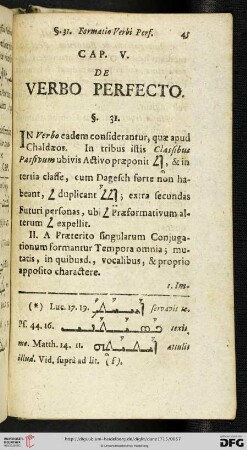 §. 31. Formatio Verbi Perf. 45
CAP. V.
DE
VERBO PERFECTO.
§. 31.
IN Verbo eadem considerantur, quæ apud
Chaldæos. In tribus istis Classibus
Passivum ubivis Activo præponit & in
tertia classe, cum Dagesch forte non ha-
beant, duplicant extra secundas
Futuri personas, ubi Præformativum al-
terum expellit.
II. A Præterito singularum Conjuga-
tionum formantur Tempora omnia; mu-
tatis, in quibusd., vocalibus, & proprio
apposito charactere.
1. Im-
(*) Luc. 17. 19. servavit te.
Ps. 44. 16. texit
me. Matth. 14. 11. attulit
illud. Vid. suprà ad lit. (f).